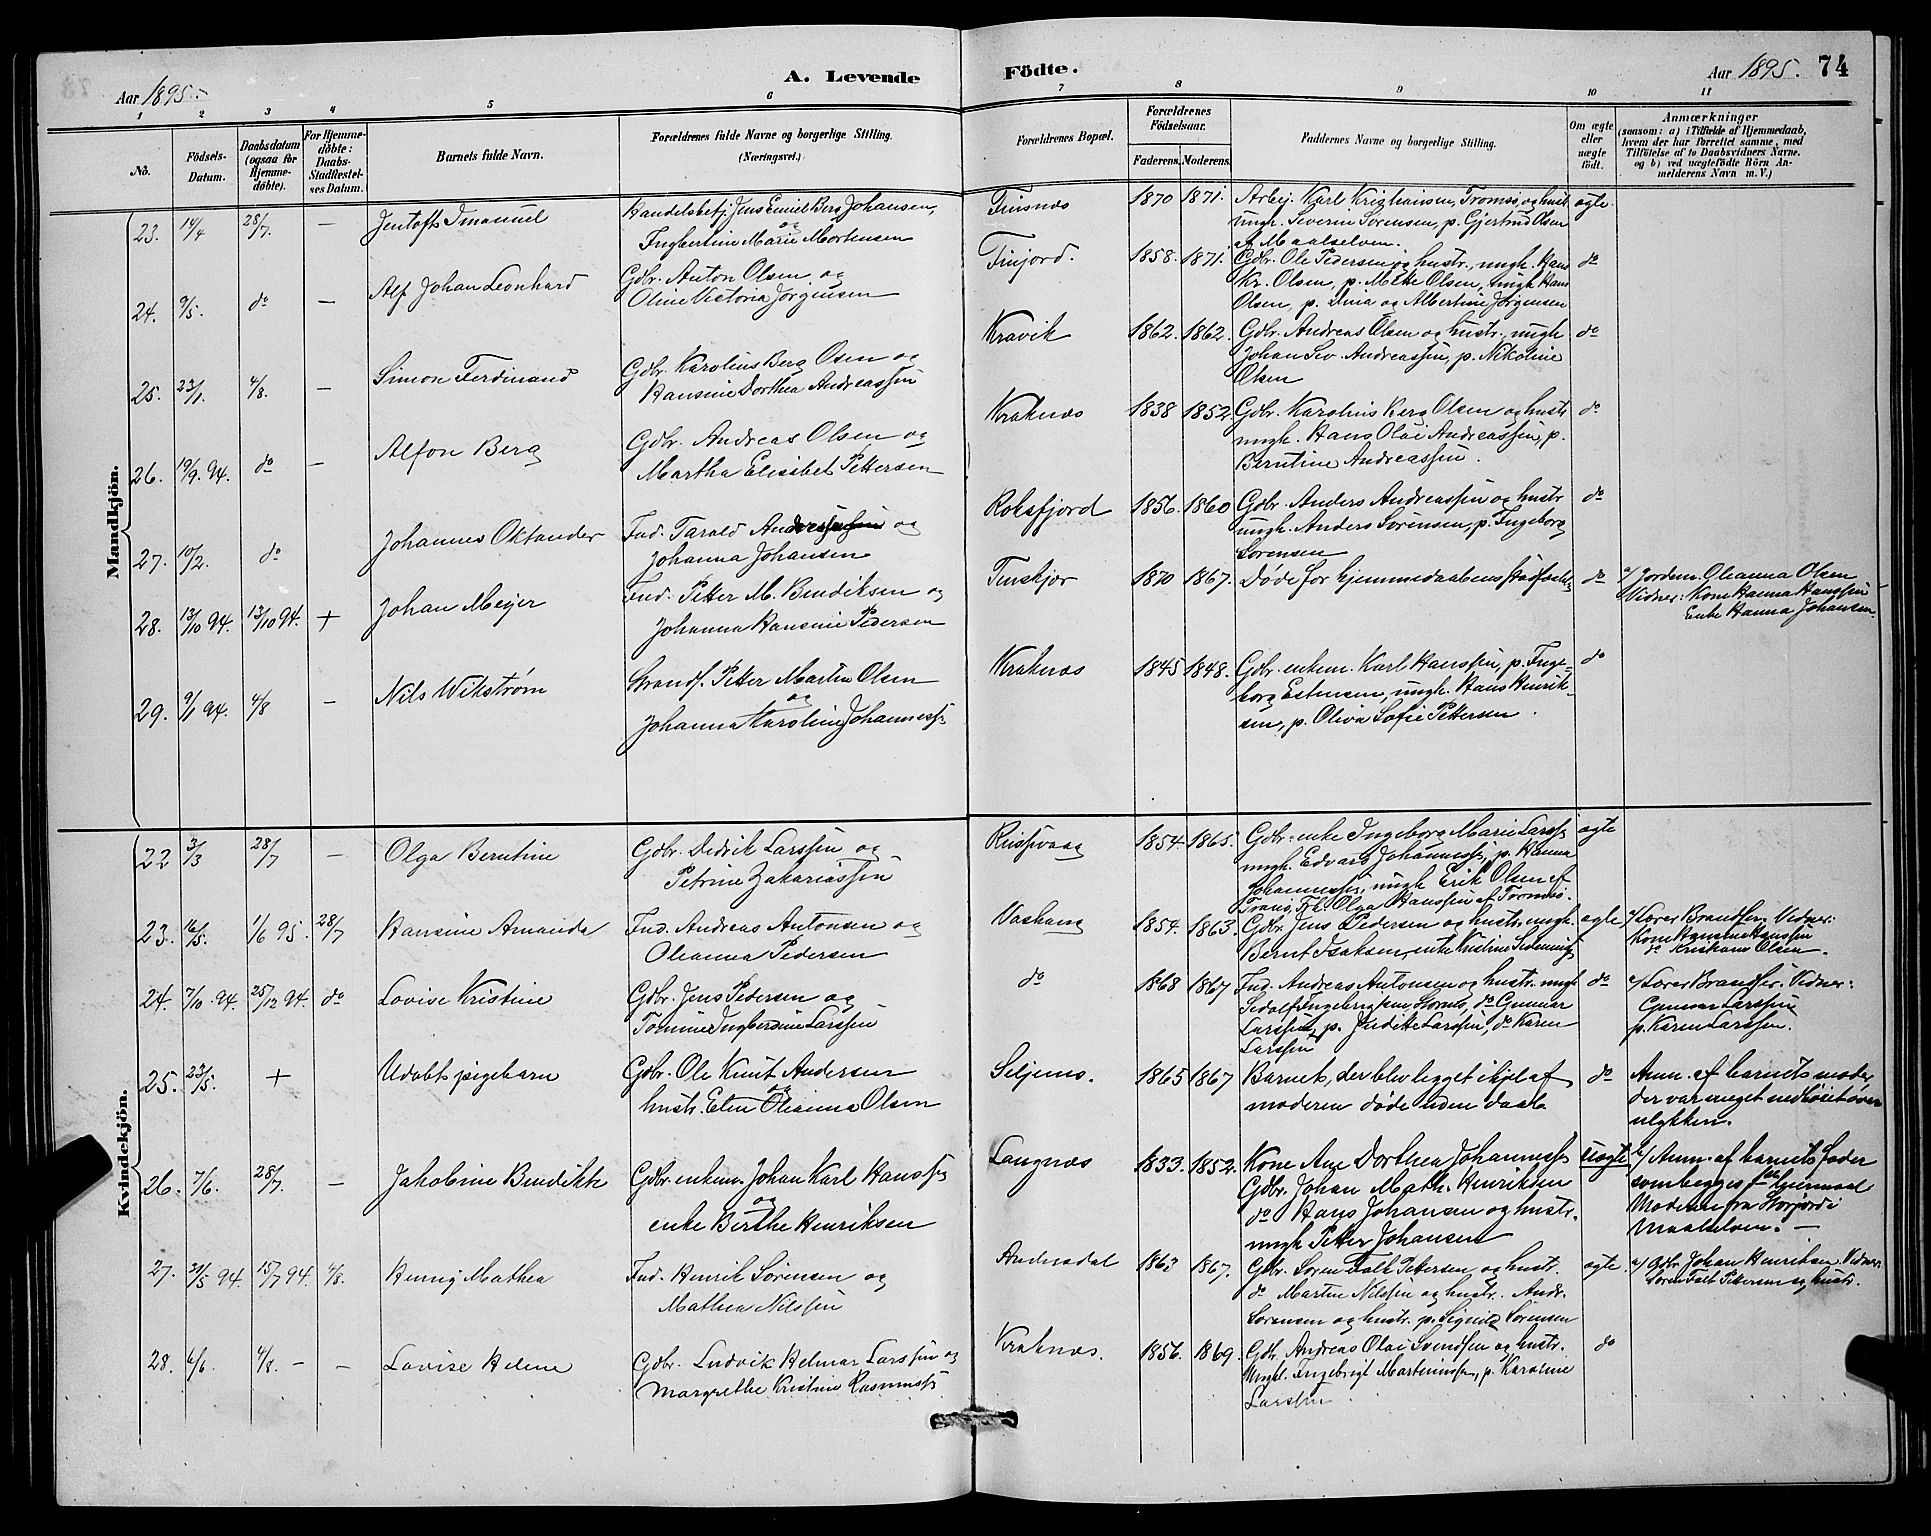 A. Levende Födte.
Aar 1895.
Aar 1895. 74
1 2 3 4 5 6 7 8 9 10 11
No.
Födsels-Datum.
Daabsdatum (ogsaa for Hjemmedöbte).
For Hjemmedöbte: Daabs-Stadfæstelses Datum.
Barnets fulde Navn.
Forældrenes fulde Navne og borgerlige Stilling. (Næringsvei.)
Forældrenes Bopæl.
Forældrenes Födselsaar.
Faderens. Moderens.
Faddernes Navne og borgerlige Stilling.
Om ægte eller uægte födt.
Anmærkninger
(saasom: a) i Tilfælde af Hjemmedaab, hvem der har forrettet samme, med Tilföielse af to Daabsvidners Navne, og b) ved uægtefödte Börn Anmelderens Navn m. V.)
Mandkjön.
23. 14/4 28/7 — Jentoft Imanuel
Handelsbetj. Jens Emiel Berg Johansen,
og
Ingbertine Marie Mortensen
Finsnæs 1870 1871.
Arbej. Karl Kristiansen, Tromsø, og hust
ungk. Severin Sørensen, p. Gjertrud Olsen
af Maalselven.
ægte.
24. 9/5. do — Alf Johan Leonhard
Gdbr. Anton Olsen og
Oline Victoria Jørgensen
Finfjord. 1858. 1871.
Gdbr. Ole Pedersen og hustr., ungk. Hans
Kr. Olsen, p. Mette Olsen, ungk Hans
Olsen, p. Dina og Albertine Jørgensen
do
25. 23/1. 4/8. — Simon Ferdinand
Gdbr. Karolius Berg Olsen og
Hansine Dorthea Andreassen
Kravik 1862. 1862.
Gdbr. Andreas Olsen og hustr., ungk.
Johan Sev. Andreassen, p. Nikoline
Olsen
do
26. 19/9. 94. do — Alfon Berg
Gdbr. Andreas Olsen og
Martha Elisabet Pettersen
Kraknæs 1838 1852.
Gdbr. Karolius Berg Olsen og hustr
ungk. Hans Olai Andreassen, p.
Berntine Andreassen.
do
27. 10/2. do
Johannes Oktander
Ind. Tarald og
Johanna Johansen
Roksfjord 1856 1860
Gdbr. Anders Andreassen og hustr
ungk. Anders Sørensen, p. Ingeborg
Sørensen
do
28. 13/10 94. 13/10 94. + Johan Meyer
Ind. Petter M. Bendiksen og
Johanna Hansine Pedersen
1870 1867.
Døde før hjemmedaabens stadfæst.
do
a/ Jordem. Oleanna Olsen
Vidner: Kone Hanna Hanssen
Enke Hanna Johansen
29. 9/1 94. 4/8 — Nils Wikstrøm
Strands. Petter Martin Olsen
og
Johanna Karoline Johanness.
Kraknæs 1845 1848.
Gdbr. enkem. Karl Hanssen, p. Inge-
borg Estensen, ungk. Hans Henrik-
sen, p. Oliva Sofie Pettersen.
do
Kvindekjön.
22 3/3 28/7 — Olga Berntine
Gdbr. Didrik Larssen og
Petrine Zakariassen
1854. 1865.
Gdbr. enke Ingeborg Marie Larss.
ungk. Edvard Johanness., p. Hanna
Johanness., ungk Erik Olsen af
Tranø, Olga Hanssen af Tromsø.
ægte
23. 16/5. 1/6 95. 28/7 Hansine Amanda
Ind. Andreas Antonsen og
Oleanna Pedersen
1854. 1863.
Gdbr. Jens Pedersen og hustr. ungk.
Bernt Isaksen, enke Kristine
ægte
a/ Lærer Brandser. Vidner:
Kone Hansine Hanssen
do Kristiane Olsen.
24. 7/10. 94. 25/12 94. do Lovise Kristine
Gdbr. Jens Pedersen og
Tomine Ingbertine Larssen
do 1868 1867
Ind. Andreas Antonsen og hustr. ungk
Sedolf Ingebrigtsen, do Gunnar
Larssen, p. Larssen, do Karen
Larssen
do
a/ Lærer Brandser. Vidner:
Gunnar Larssen
p. Karen Larssen.
25. 23/5. + Udøbt pigebarn
Gdbr. Ole Knut Andersen
og
hustr. Elen Oleanna Olsen
Seljenæs. 1865 1867
Barnet, der blev lægget ihjel af
moderen døde uden daab
do
Anm. af barnets moder
der var meget nedbøiet over
ulykken.
26. 7/6. 28/7. — Jakobine Bendikte
Gdbr. enkem. Johan Karl Hanss.
og
enke Berthe Henriksen
Langnæs 1833. 1852.
Kone Ane Dorthea Johanness.
Gdbr. Johan Math. Henriksen
do Hans Johansen og hustr.
ungk Petter Johansen
uægte
b/ Anm. af barnets fader
som begges 1ste leiermaal
Moderen fra Storjord i
Maalselven. —
27. 31/5 94. 15/7 94. 4/8. Henrig Mathea
Ind. Henrik Sørensen og
Mathea Nilssen
Andersdal 1863 1867.
Gdbr. Søren Falk Pettersen og hustr.
do Martin Nilssen og hustr. Andr.
Sørensen og hustr. p. Sigrid Sørensen
ægte.
a/ Gdbr Johan Henriksen, Vidner:
Søren Falk Pettersen og hustr.
28. 6/6. 4/8. — — Lovise Helene
Gdbr. Ludvik Helmar Larssen og
Margrethe Kristine Rasmuss.
Kraknæs. 1856. 1869.
Gdb. Andreas Olai Svendsen og hustr.
Ungk. Ingebrigt Martiniuss., p. Karoline
Larssen.
do